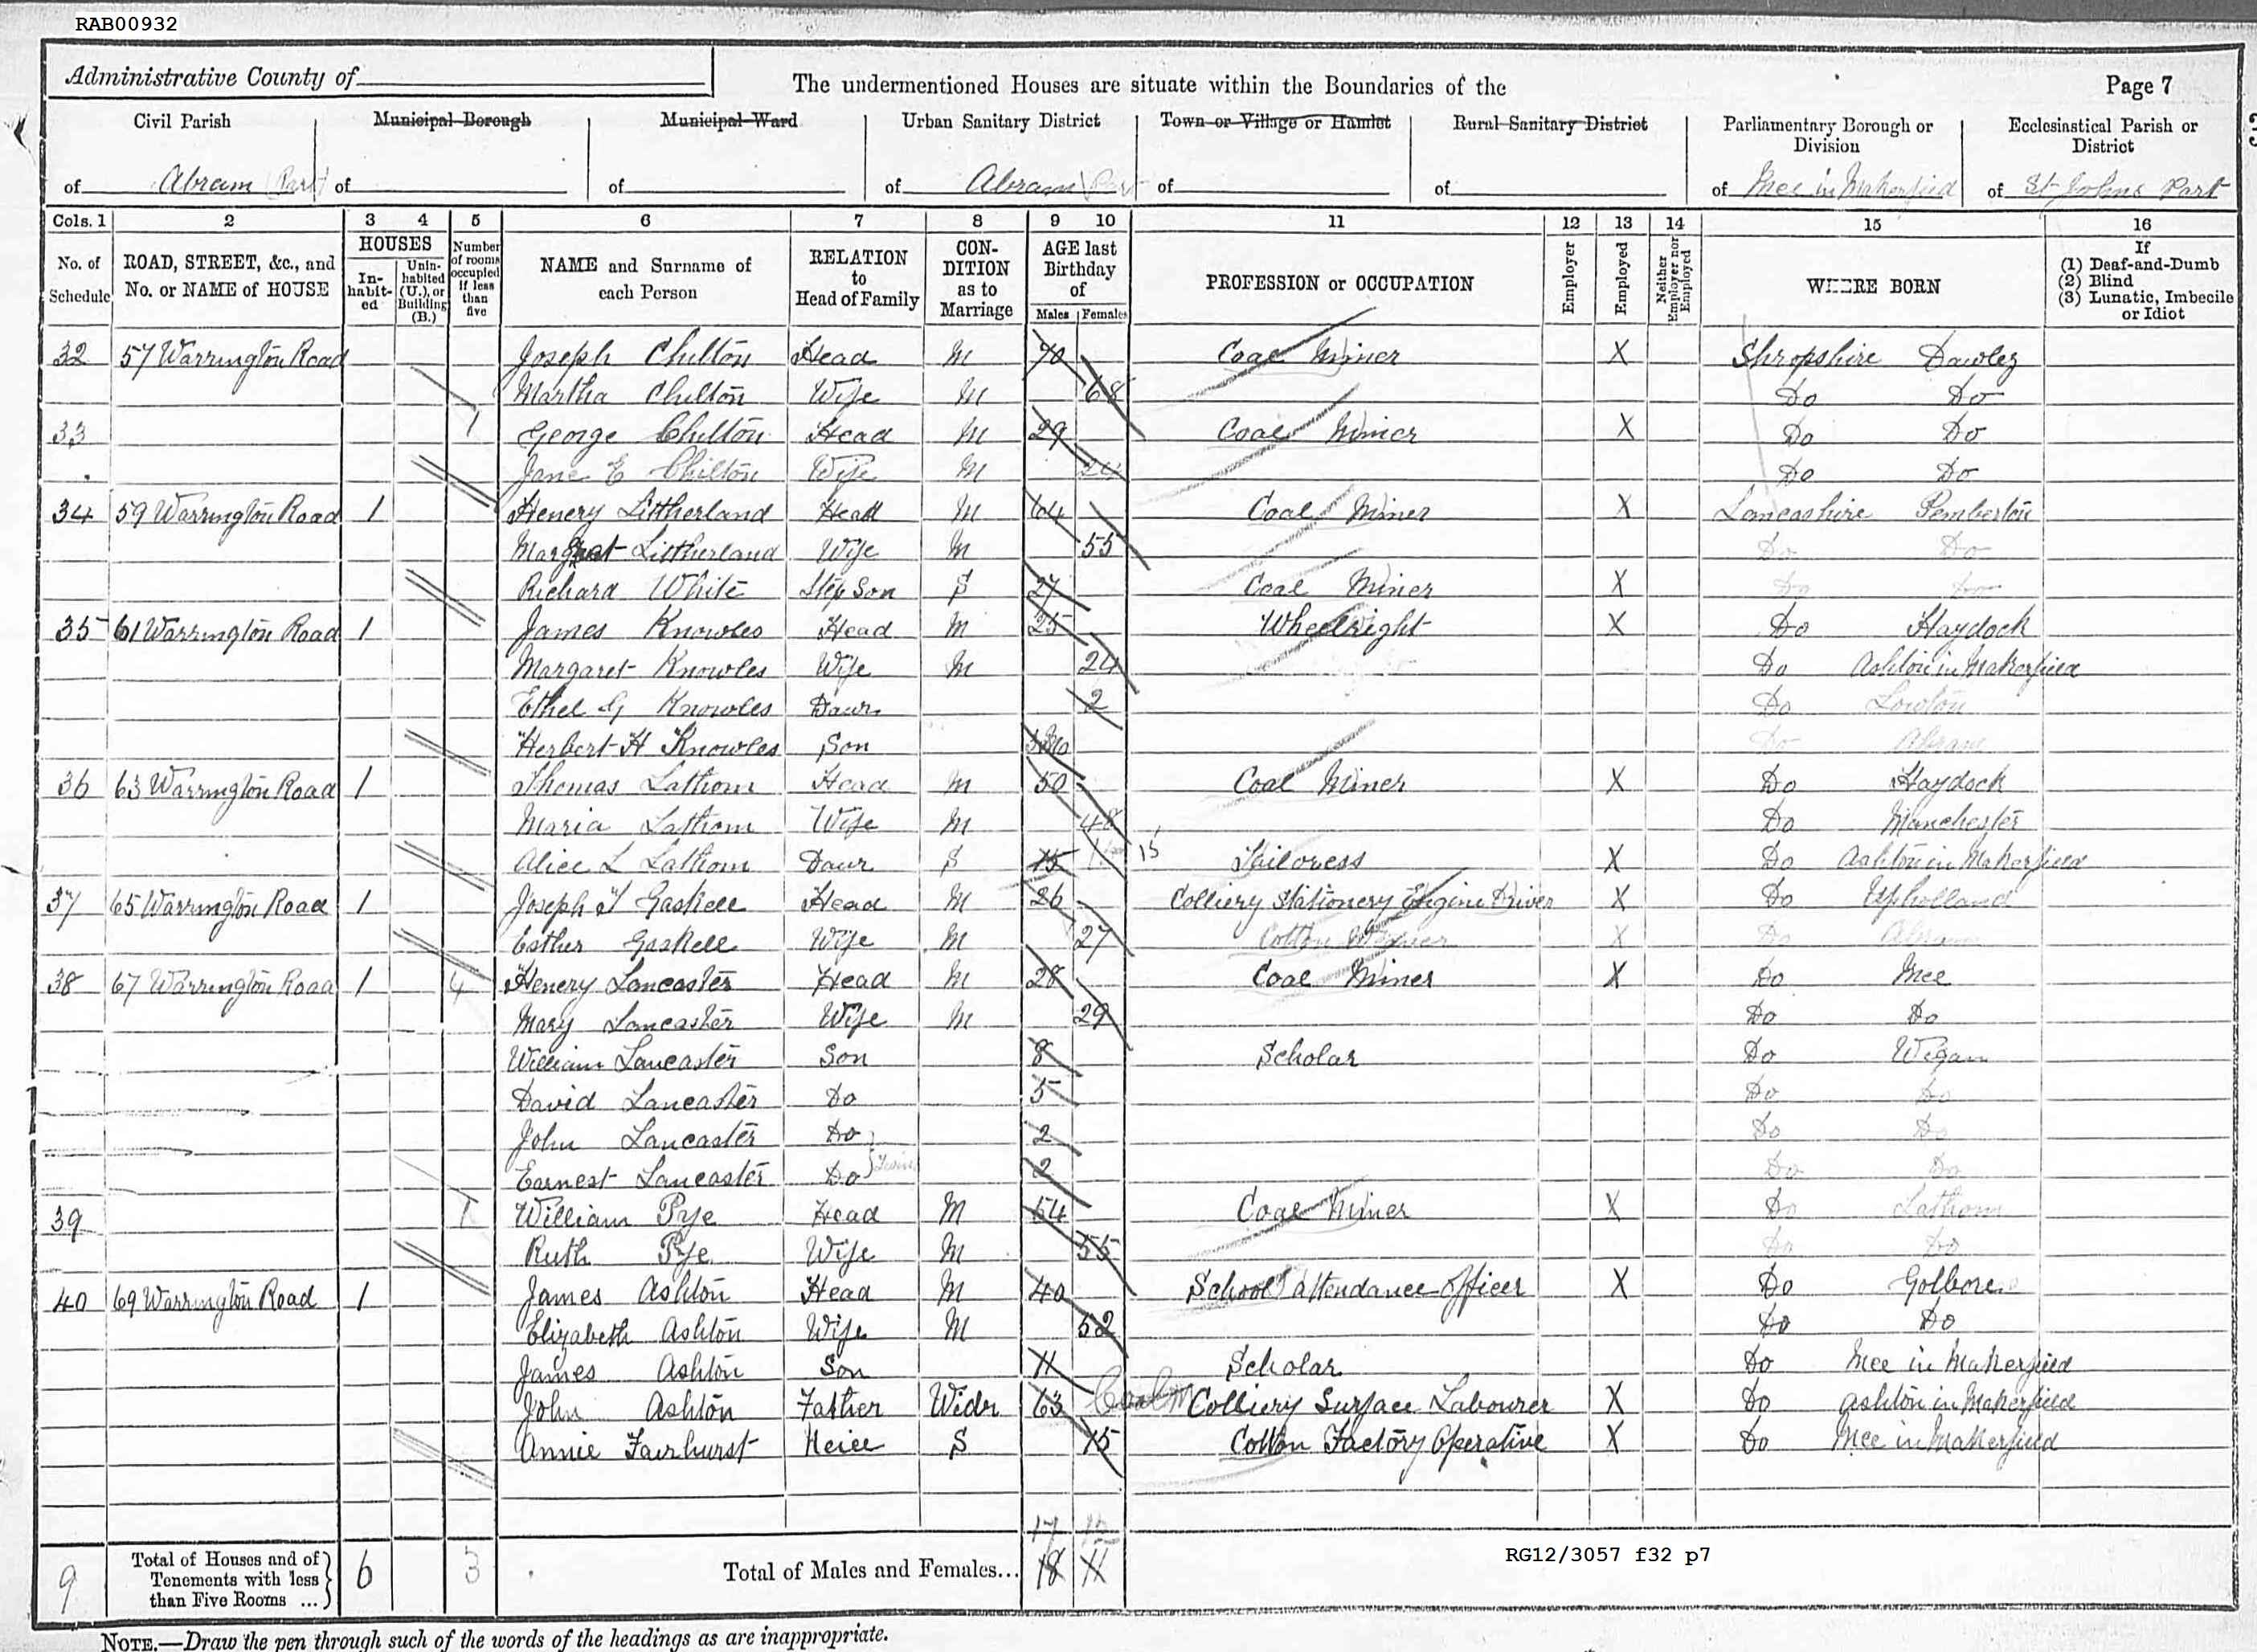 RAB00932
Administrative County of
The undermentioned Houses are situate within the Boundaries of the
Page 7
Civil Parish Municipal Borough Municipal Ward Urban Sanitary District Town or Village or Hamlet Rural Sanitary District Parliamentary Borough or Division Ecclesiastical Parish or District
of Abram (Part) of of of Abram (Part of of of Ince in Makerfield of St Johns Part
Cols. 1 2 3 4 5 6 7 8 9 10 11 12 13 14 15 16
No. of Schedule ROAD, STREET, &c., and No. or NAME of HOUSE HOUSES Inhabited Uninhabited (U.), or Building (B.) Number of rooms occupied if less than five NAME and Surname of each Person RELATION to Head of Family CONDITION as to Marriage AGE last Birthday of Males Females PROFESSION or OCCUPATION Employer Employed Neither Employer nor Employed WHERE BORN If (1) Deaf-and-Dumb (2) Blind (3) Lunatic, Imbecile or Idiot
32 57 Warrington Road Joseph Chilton Head M 70 Coal Miner X Shropshire Dawley
Martha Chilton Wife M 68 Do Do
33 1 George Chilton Head M 29 Coal Miner X Do Do
Jane E Chilton Wife M 24 Do Do
34 59 Warrington Road 1 Henery Littherland Head M 64 Coal Miner X Lancashire Pemberton
Littherland Wife M 55 Do Do
Richard White Step Son S 27 Coal Miner X Do Do
35 61 Warrington Road 1 James Knowles Head M 25 Wheelright X Do Haydock
Margaret Knowles Wife M 24 Do Ashton in Makerfield
Ethel G Knowles Daur 2 Do Lowton
Herbert H Knowles Son Do Abram
36 63 Warrington Road 1 Thomas Lathom Head M 50 Coal Miner X Do Haydock
Maria Lathom Wife M 48 Do Manchester
Alice L Lathom Daur S 15 15 Tailoress X Do Ashton in Makerfield
37 65 Warrington Road 1 Joseph T Gaskell Head M 26 Colliery Stationery Engine Driver X Do Upholland
Esther Gaskell Wife M 27 Cotton X Do Abram
38 67 Warrington Road 1 4 Henery Lancaster Head M 28 Coal Miner X Do Ince
Mary Lancaster Wife M 29 Do Do
William Lancaster Son 8 Scholar Do Wigan
David Lancaster Do 5 Do Do
John Lancaster Do 2 Do Do
Earnest Lancaster Do } Twins 2 Do Do
39 1 William Pye Head M 54 Coal Miner X Do Lathom
Ruth Pye Wife M 55 Do Do
40 69 Warrington Road 1 James Ashton Head M 40 School Attendance Officer X Do Golborne
Elizabeth Ashton Wife M 52 Do Do
James Ashton Son 11 Scholar Do Ince in Makerfield
John Ashton Father Widr 63 Colliery Surface Labourer X Do Ashton in Makerfield
Annie Fairhurst Neice S 15 Cotton Factory Operative X Do Ince in Makerfield
17 12
9 Total of Houses and of Tenements with less than Five Rooms ...} 6 3 Total of Males and Females... 18 11
RG12/3057 f32 p7
NOTE.—Draw the pen through such of the words of the headings as are inappropriate.